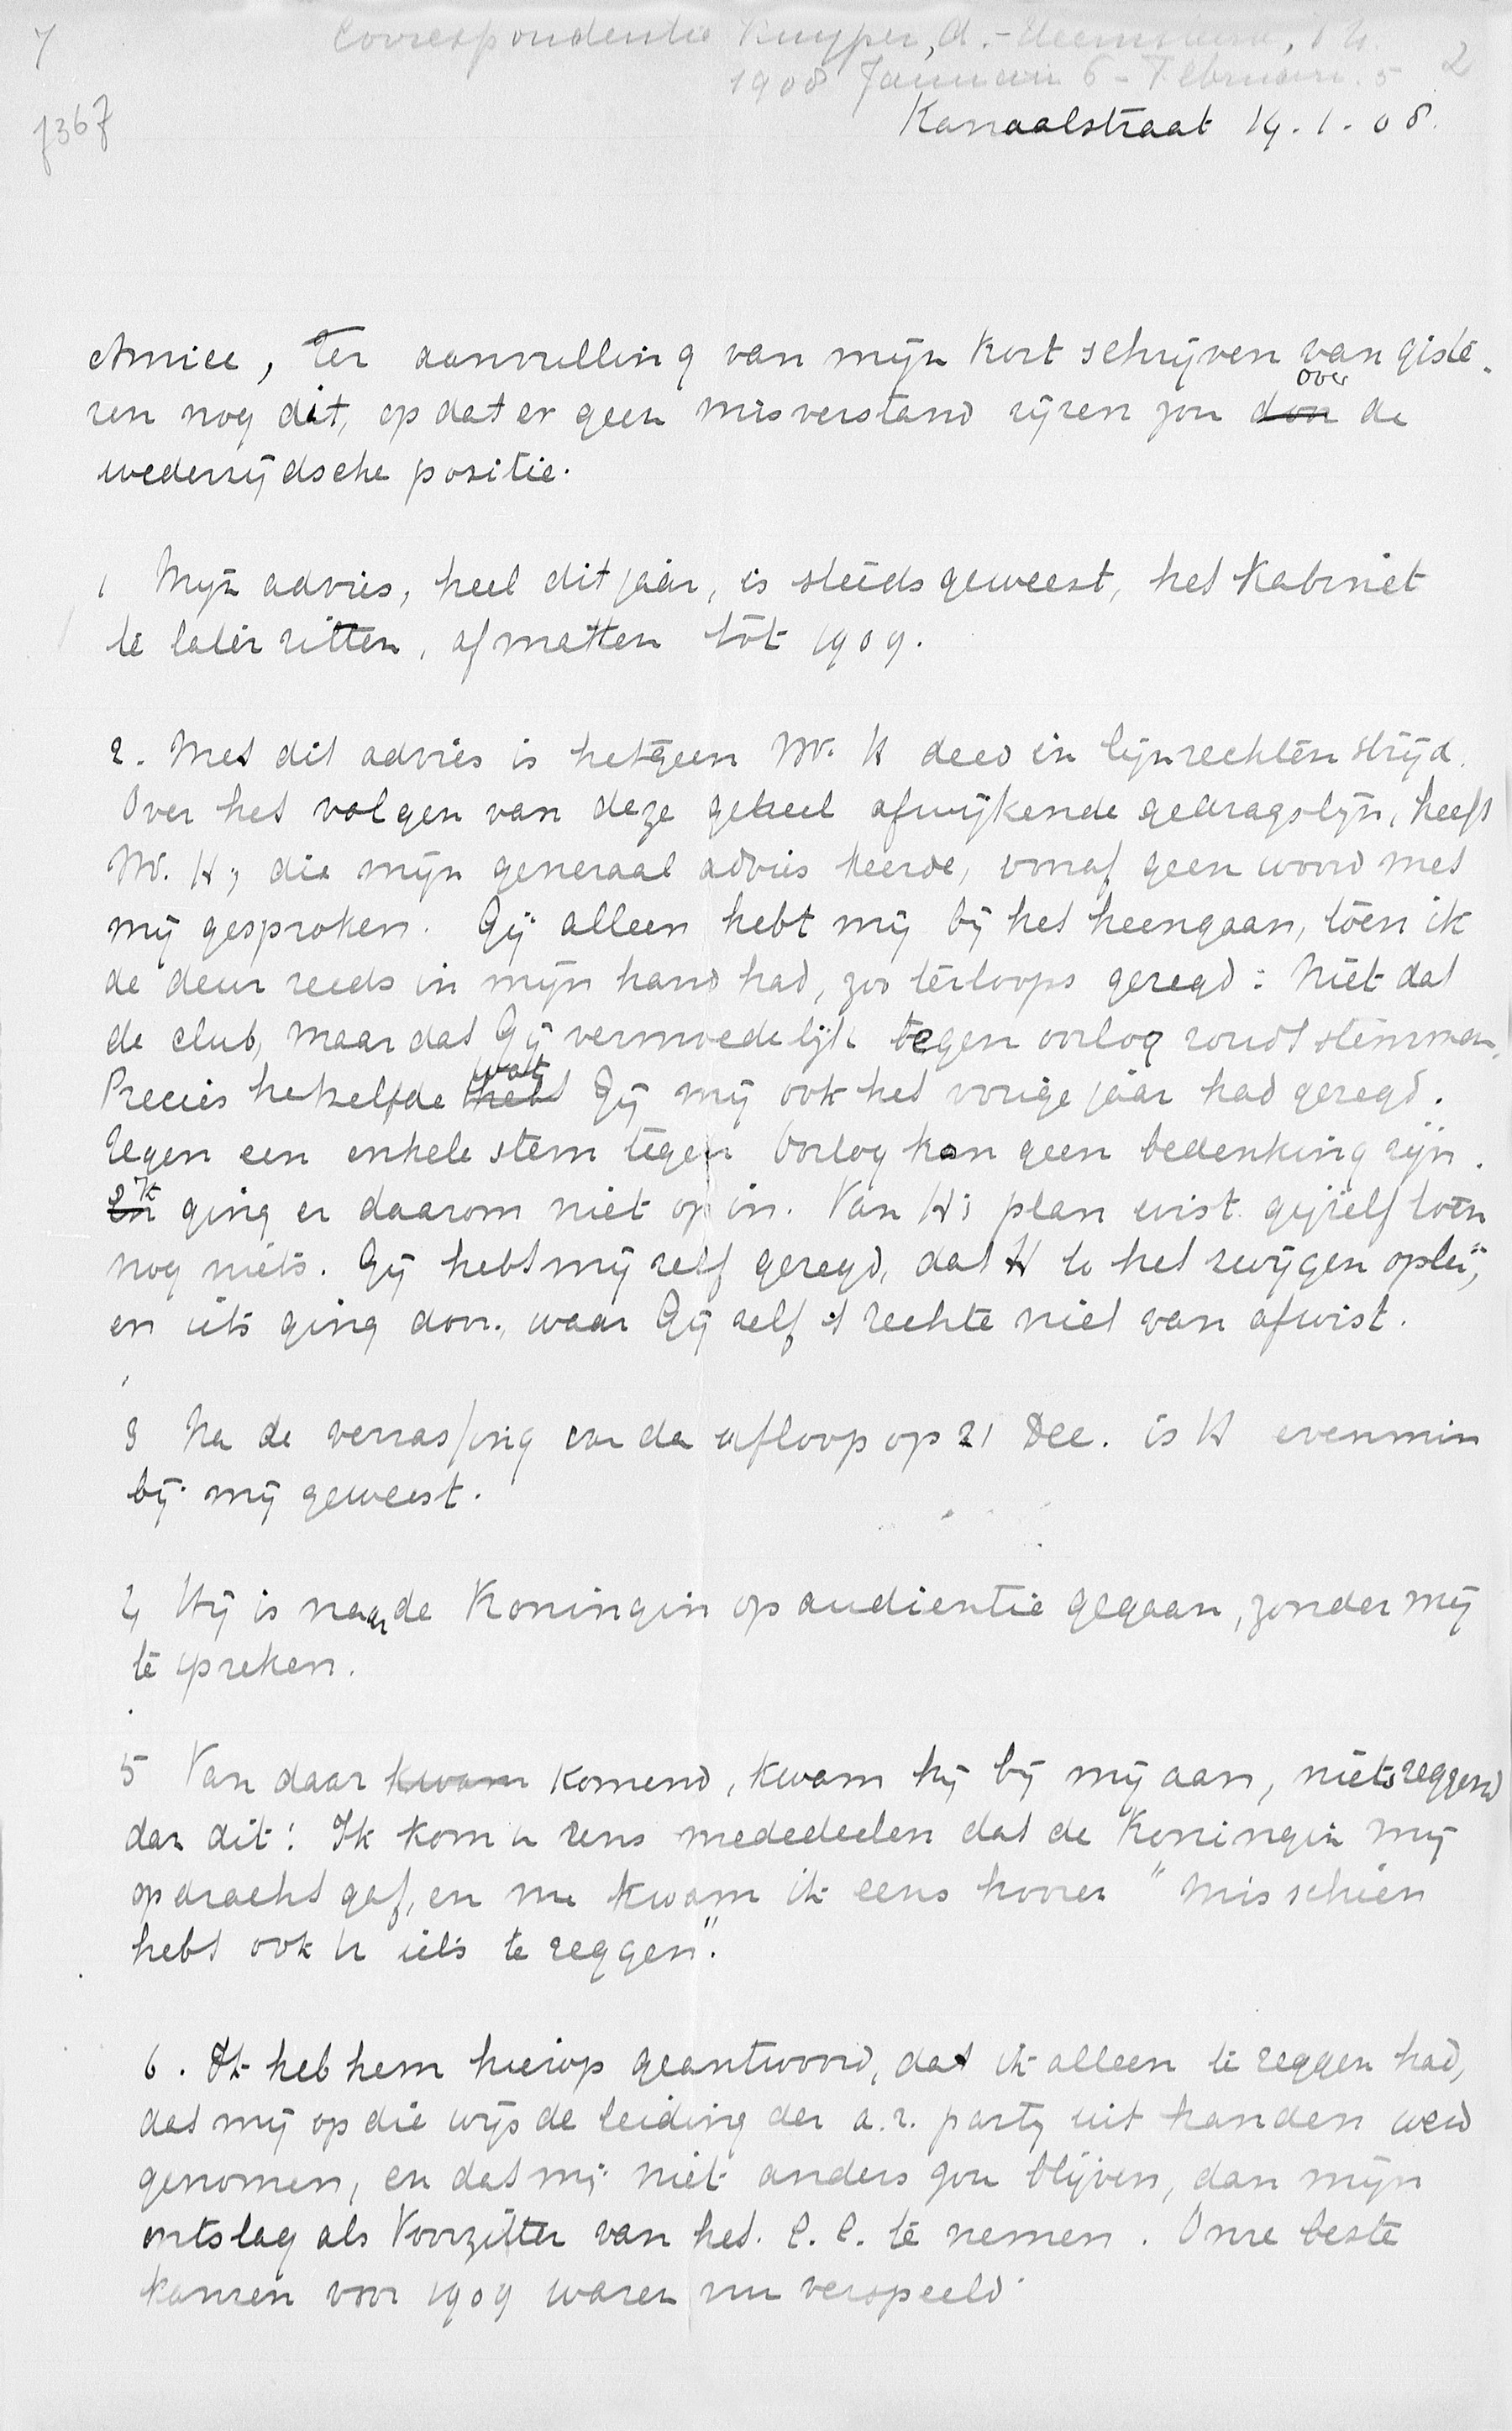 7
Correspondentie Kuyper, A. - Heemskerk, Th.
1908 Januari 6 - Februari 5
2
7367
Kanaalstraat 14.1.08.
Amice, Ter aanvulling van mijn kort schrijven van giste-
ren nog dit, opdat er geen misverstand rijzen zou over de
wederzijdsche positie.
1 Mijn advies, heel dit jaar, is steeds geweest, het Kabinet
te laten zitten, afmatten tot 1909.
2. Met dit advies is hetgeen Mr. H deed in lijnrechten strijd.
Over het volgen van deze geheel afwijkende gedragslijn, heeft
Mr. H, die mijn generaal advies kende, vooraf geen woord met
mij gesproken. Gij alleen hebt mij bij het heengaan, toen ik
de deur reeds in mijn hand had, zoo terloops gezegd: Niet dat
de club, maar dat Gij vermoedelijk tegen oorlog zoudt stemmen.
Precies hetzelfde wat Gij mij ook het vorige jaar had gezegd.
Tegen een enkele stem tegen Oorlog kan geen bedenking zijn.
Ik ging er daarom niet op in. Van H's plan wist gijzelf toen
nog niets. Gij hebt mij zelf gezegd, dat H u het zwijgen oplei,
en iets ging doen, waar Gij zelf 't rechte niet van afwist.
3 Na de verrassing van de afloop op 21 Dec. is H evenmin
bij mij geweest.
4 Hij is naar de Koningin op audientie gegaan, zonder mij
te spreken.
5 Van daar kwam komend, kwam hij bij mij aan, niets zeggend
dan dit: Ik kom u eens mededeelen dat de Koningin mij
opdracht gaf, en nu kwam ik eens hooren "Misschien
hebt ook U iets te zeggen".
6. Ik heb hem hierop geantwoord, dat ik alleen te zeggen had,
dat mij op die wijs de leiding der a.r. partij uit handen werd
genomen, en dat mij niet anders zou blijven, dan mijn
ontslag als Voorzitter van het C. C. te nemen. Onze beste
kansen voor 1909 waren nu verspeeld.